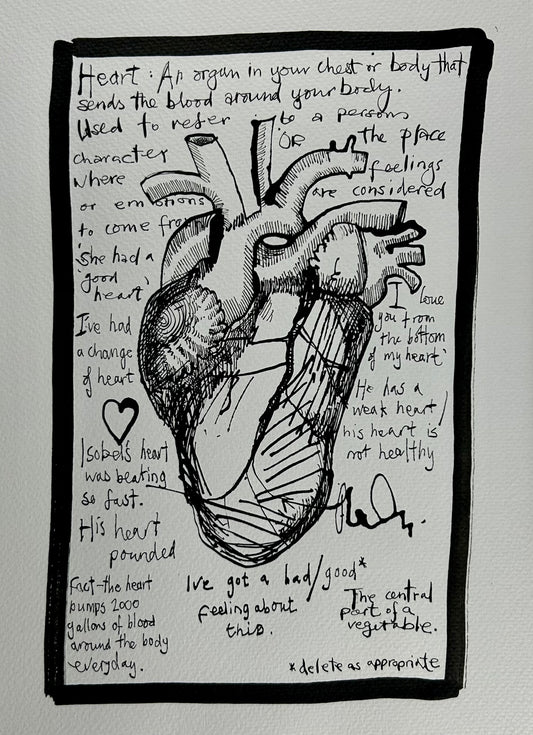 Heart : An organ in your chest or body that
sends the blood around your body.
Used to refer to a persons
character OR the place
where feelings
or emotions are considered
to come from
'she had a
good
heart'
I've had
a change
of heart
Isobel's heart
was beating
so fast.
His heart
pounded
Fact-the heart
pumps 2000
gallons of blood
around the body
everyday.
I love
you from
the bottom
of my heart'
He has a
weak heart/
his heart is
not healthy
I've got a bad/good*
feeling about
this.
The central
part of a
vegetable.
*delete as appropriate